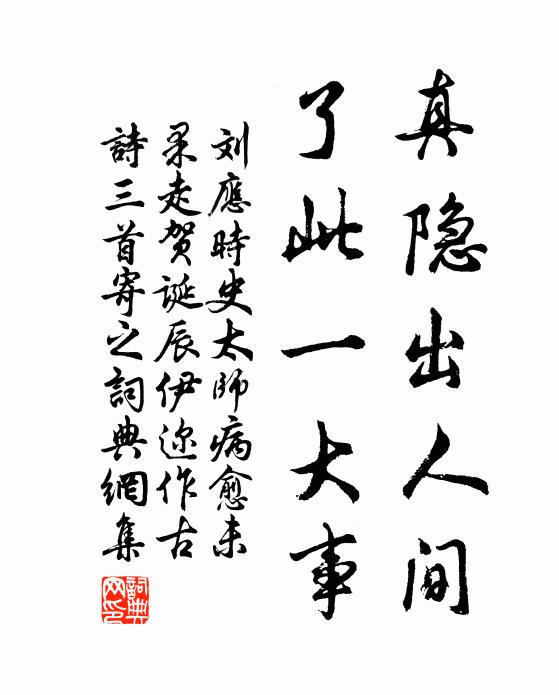 真隐出人间
了此一大事
刘應時史太師病愈未
果走贺诞辰伊迩作古
詩三首寄之詞典網集
詞典
网印